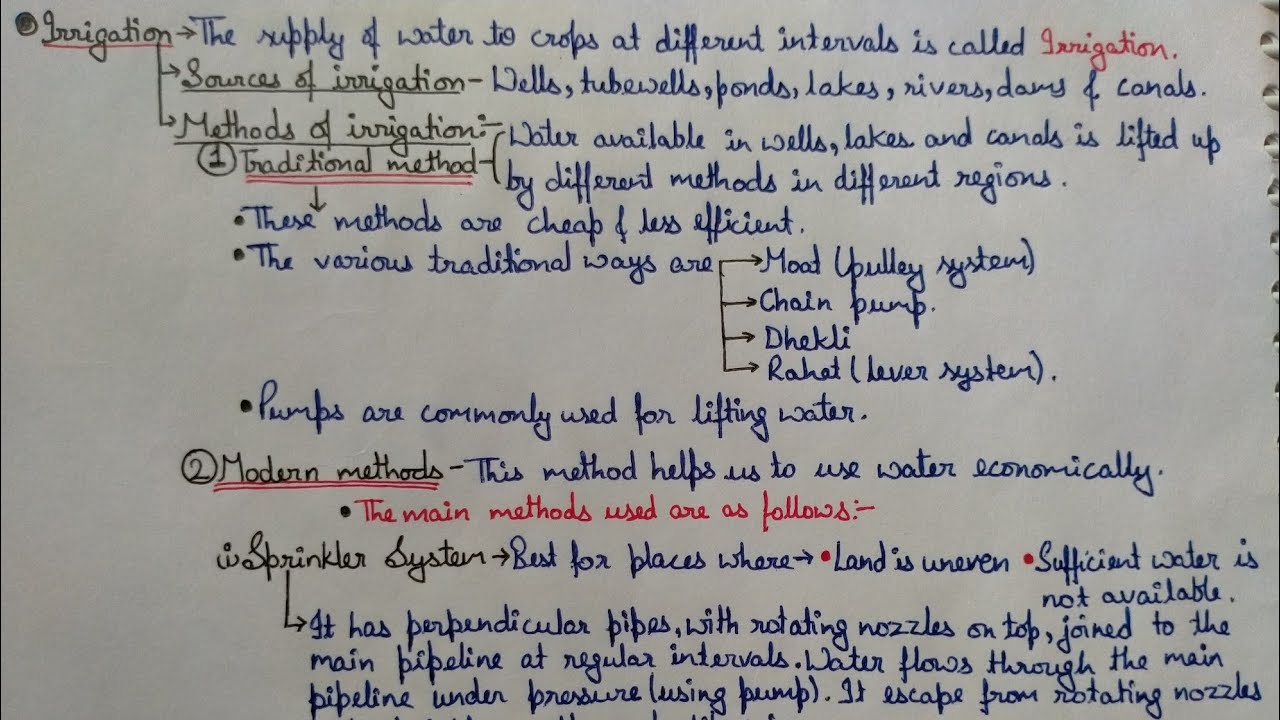 Irrigation → The supply of water to crops at different intervals is called Irrigation.
→ Sources of irrigation - Wells, tubewells, ponds, lakes, rivers, dams & canals.
Methods of irrigation:- Water available in wells, lakes and canals is lifted up
① Traditional method - by different methods in different regions.
• These methods are cheap & less efficient.
• The various traditional ways are → Moat (pulley system)
→ Chain pump.
→ Dhekli
→ Rahat (lever system).
• Pumps are commonly used for lifting water.
② Modern methods - This method helps us to use water economically.
• The main methods used are as follows:-
i) Sprinkler System → Best for places where → • Land is uneven • Sufficient water is
not available.
→ It has perpendicular pipes, with rotating nozzles on top, joined to the
main pipeline at regular intervals. Water flows through the main
pipeline under pressure (using pump). It escape from rotating nozzles